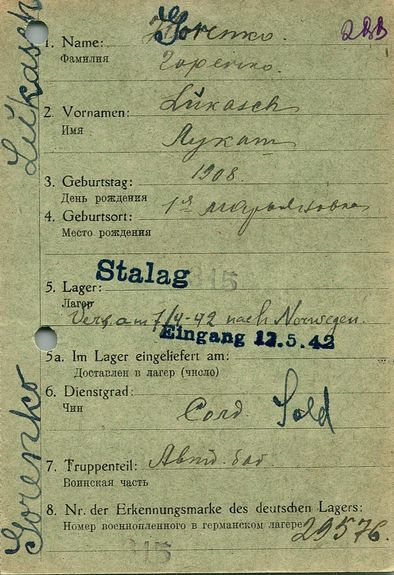 Gorenko
Lukasch
1. Name: Gorenko.
288
Фамилия Горенко.
2. Vornamen: Lukasch
Имя Лукаш
3. Geburtstag: 1908.
День рождения
4. Geburtsort:
Место рождения
Stalag 315
5. Lager:
Лагер
Vers. am 7/4-42 nach Norwegen.
Eingang 12.5.42
5a. Im Lager eingeliefert am:
Доставлен в лагер (число)
6. Dienstgrad: Sold
Чин
7. Truppenteil:
Воинская часть
8. Nr. der Erkennungsmarke des deutschen Lagers:
Номер военнопленного в германском лагере 29576.
315